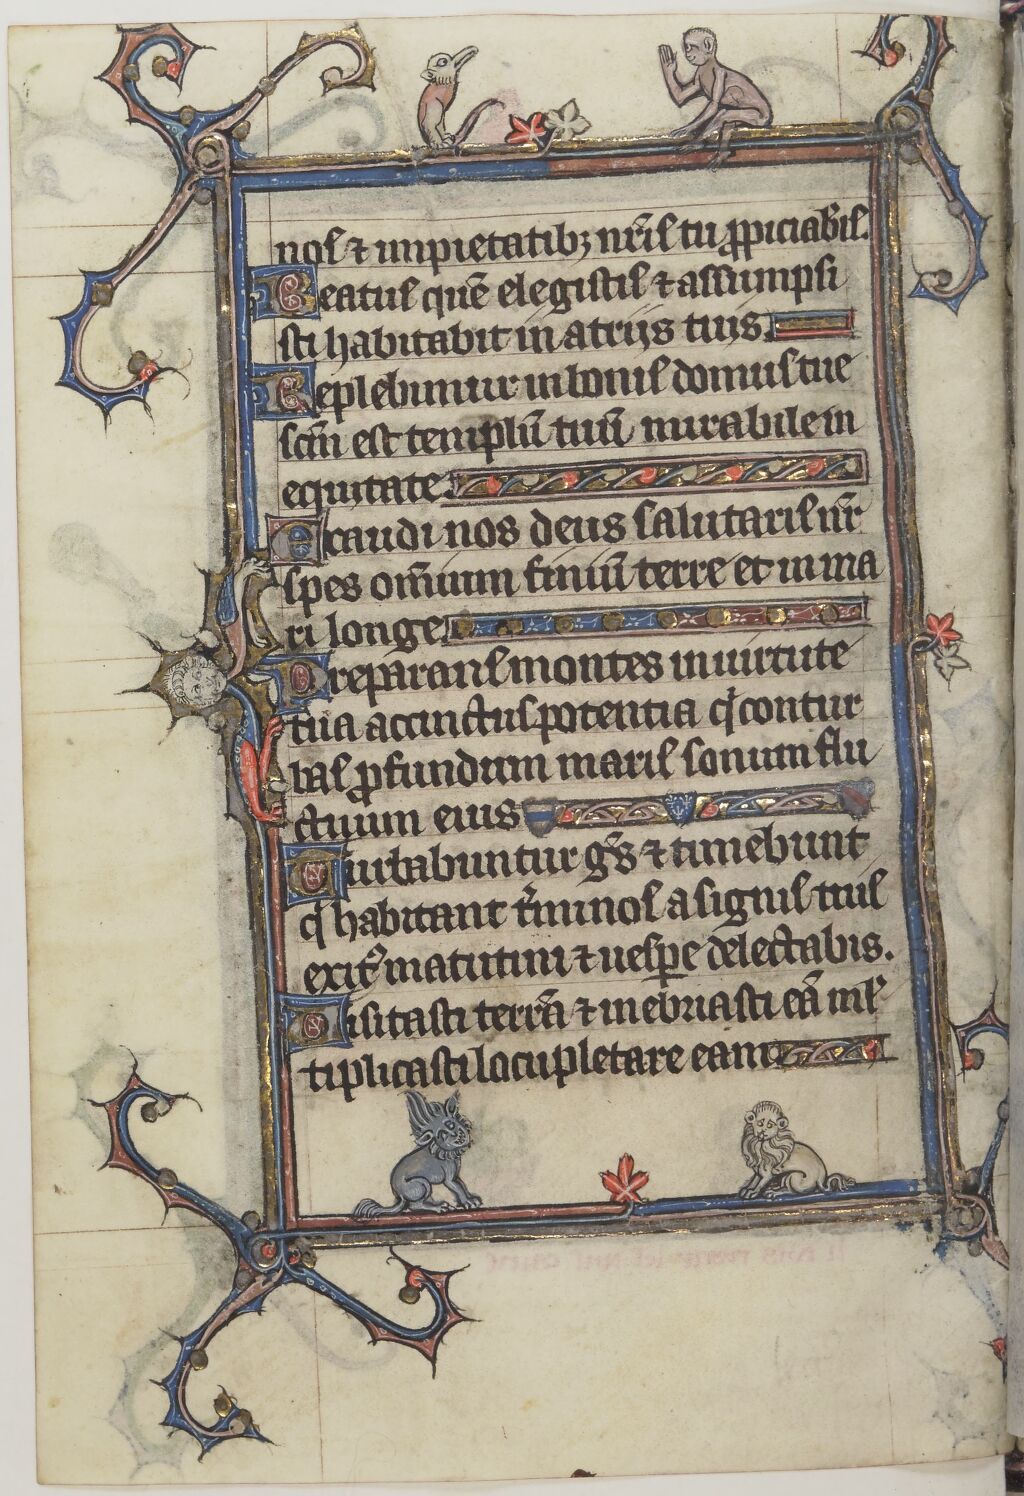 nos ⁊ impietatibꝫ nr̃is tu ꝓpiciabis.
Beatus quẽ elegistis ⁊ assumpsi
sti habitabit in atriis tuis.
Replebimur in bonis domus tue
scm̃ est templũ tuũ mirabile in
equitate.
Exaudi nos deus salutaris nr̃
spes om̃ium finiũ terre et in ma
ri longe.
Preparans montes in uirtute
tua accinctus potentia q̇ contur
bas ꝓfundum maris sonum flu
ctuum eius
Turbabuntur gẽs ⁊ timebunt
q̇ habitant t̃minos a signis tuis
exit᷒ matutini ⁊ uespe delectabis.
Uisitasti terrã ⁊ inebriasti eã ml̃
tiplicasti locupletare eam